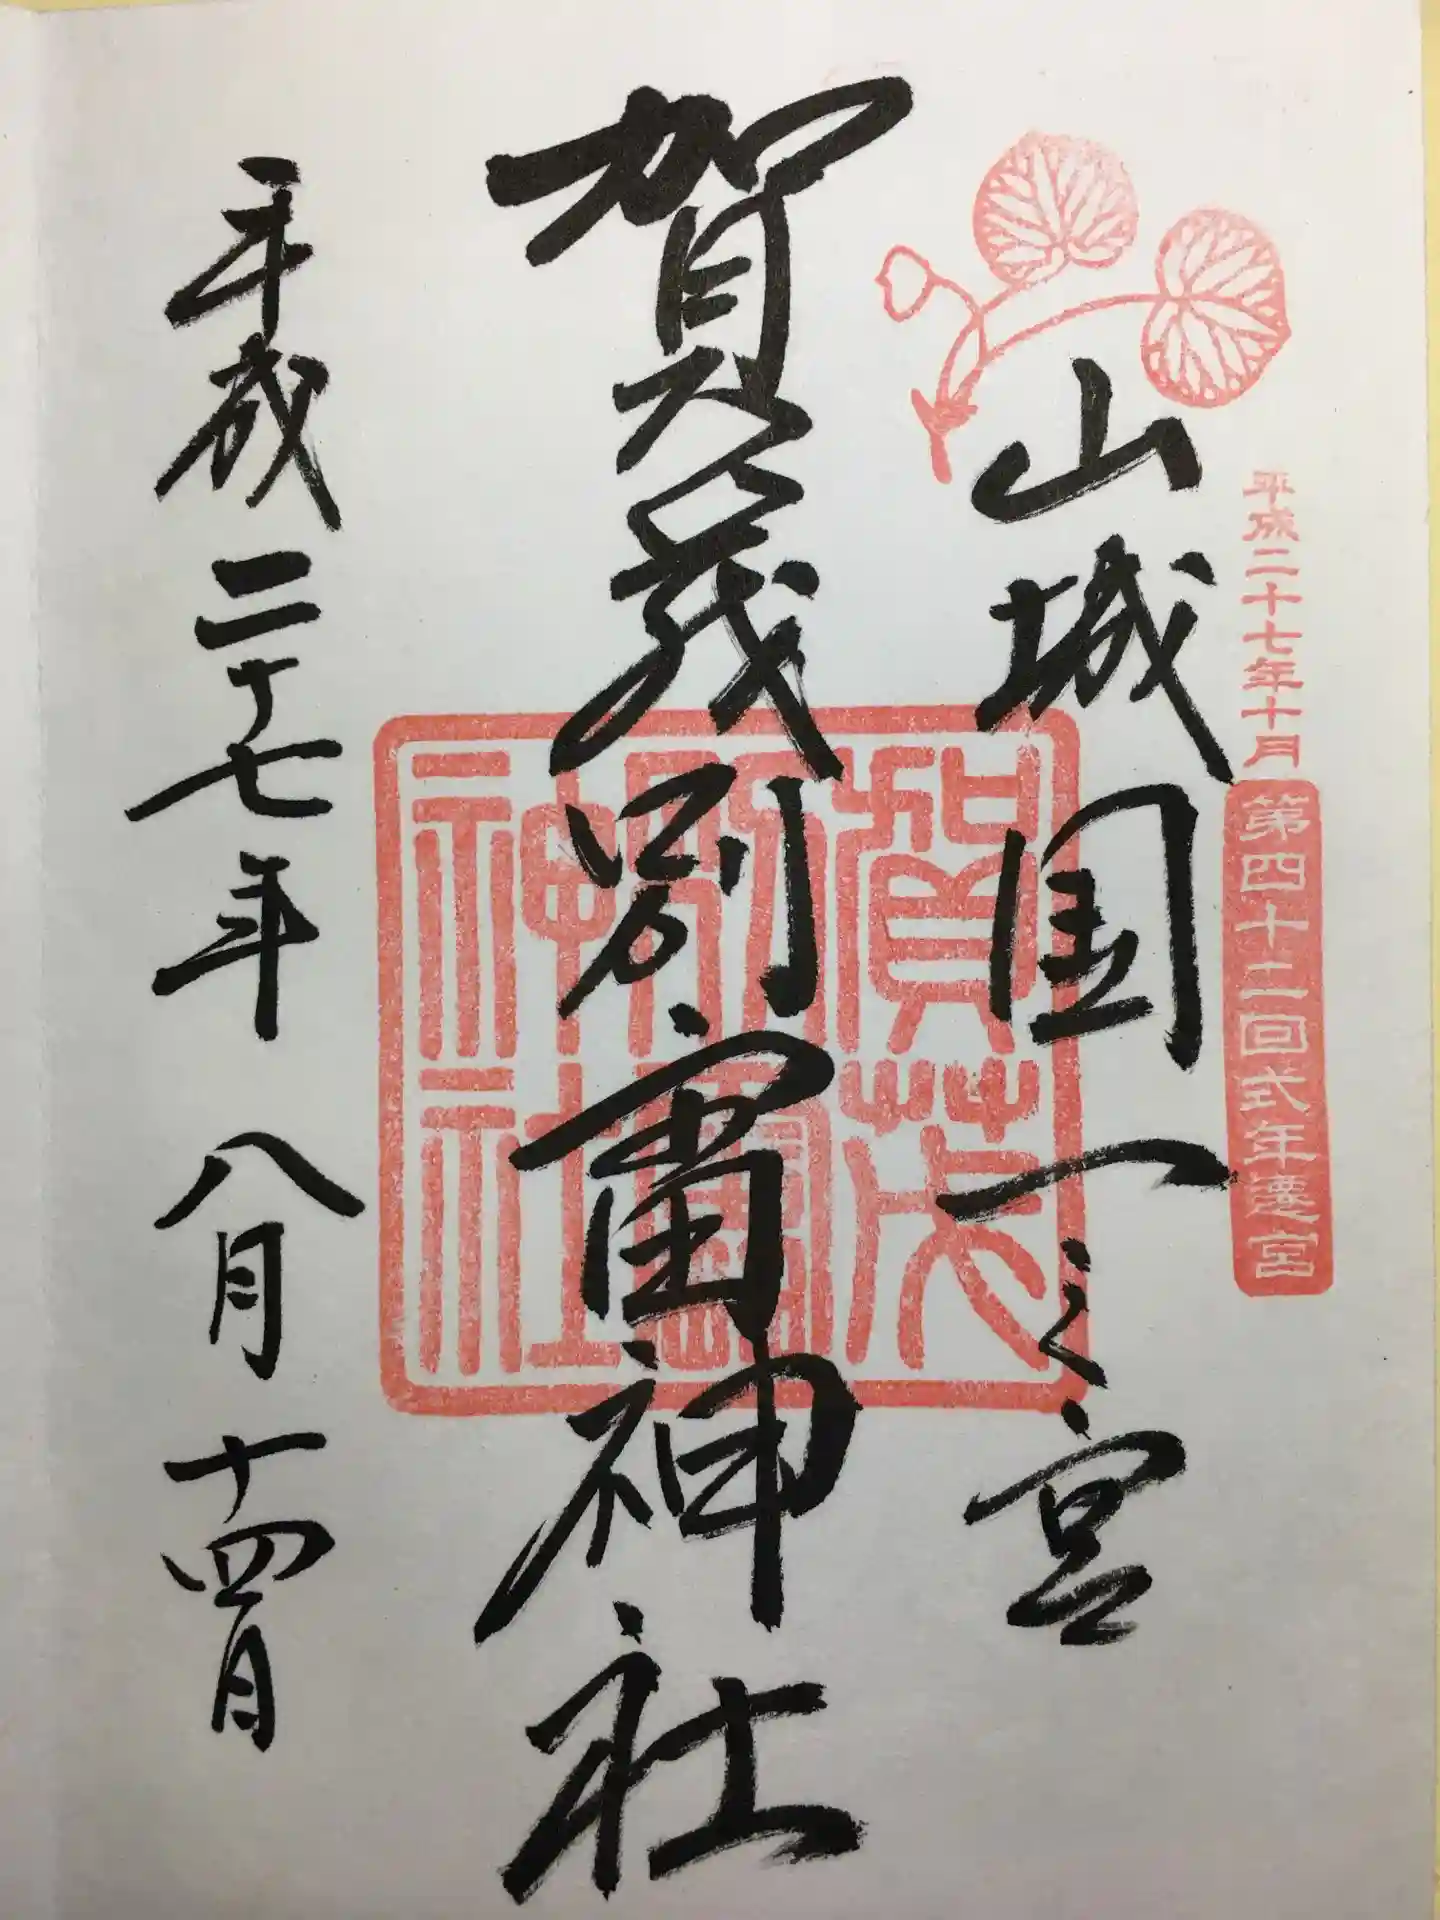 平成二十七年十月
第四十二回式年遷宮
山城国一之宮
賀茂別雷神社
賀茂別雷神社
平成二十七年 八月 十四日